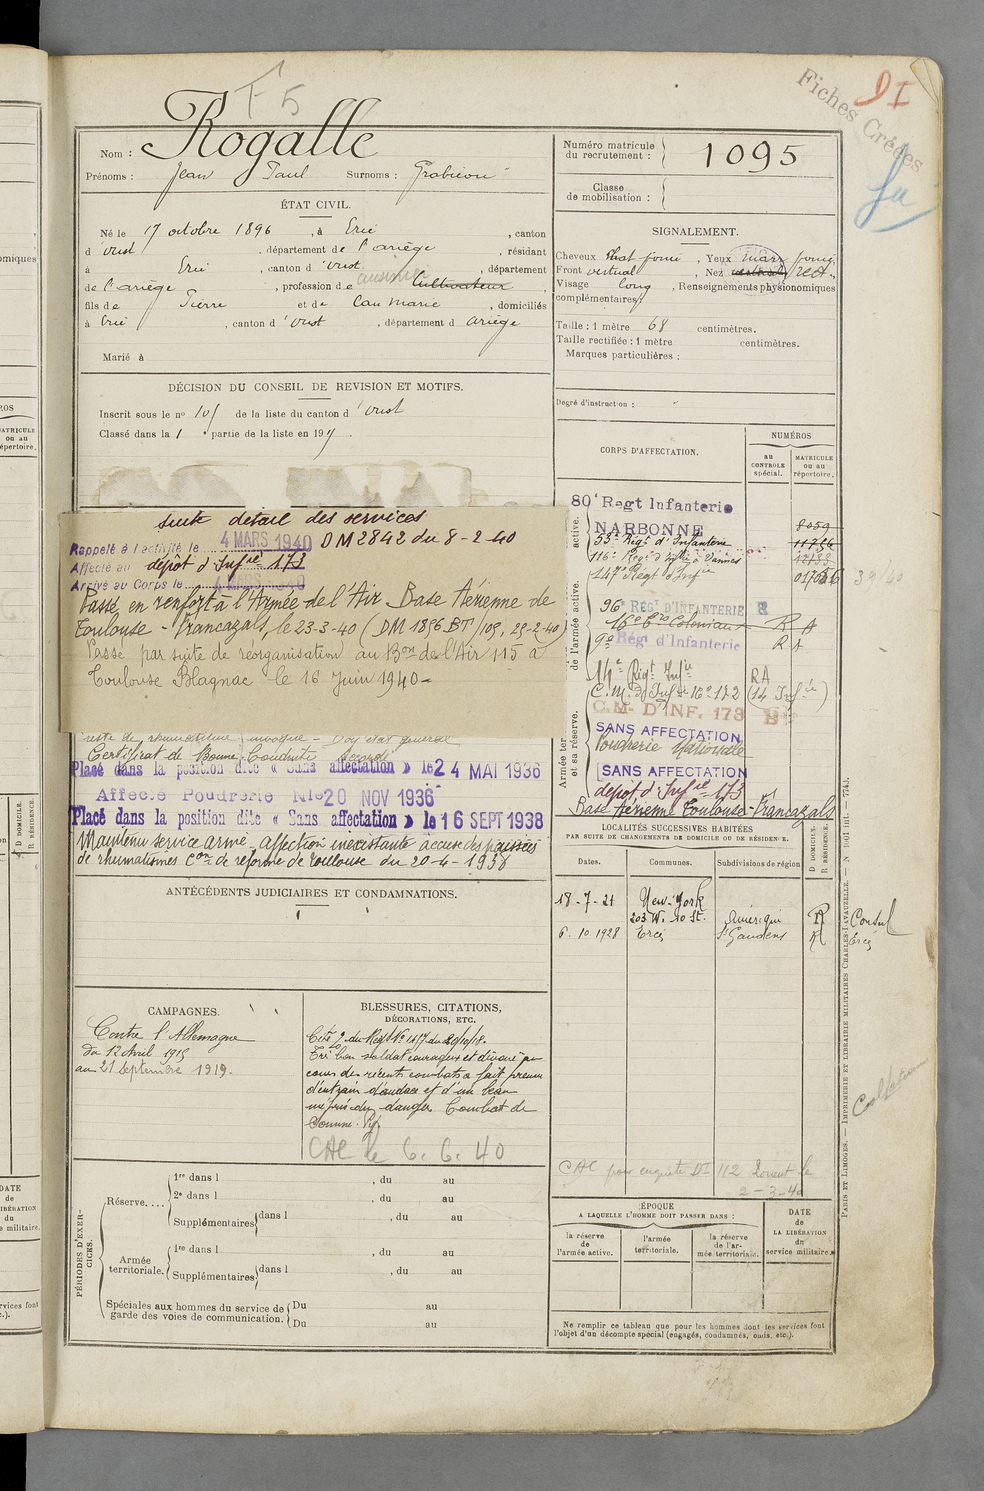 F 5
Fiches Créées
DI
Nom : Rogalle
Prénoms : Jean Paul Surnoms :
ÉTAT CIVIL.
Né le 17 octobre 1896, à Ercé, canton
d'oust, département de l'ariège, résidant
à Ercé, canton d'oust, département
de l'ariège, profession de cultivateur cuisinier,
fils de Pierre et de Cau Marie, domiciliés
à Ercé, canton d'oust, département d ariège
Marié à
DÉCISION DU CONSEIL DE REVISION ET MOTIFS.
Inscrit sous le no 105 de la liste du canton d'oust
Classé dans la 1 e partie de la liste en 191
suite détail des services
Rappelé à l'activité le 4 MARS 1940 DM 2842 du 8-2-40
Affecté au dépôt d'Infie 173
Arrivé au Corps le 4 MARS 1940
Passé en renfort à l'Armée de l'Air Base Aérienne de
Toulouse - Francazals, le 23-3-40 (DM 1896 BT/105, 29-2-40)
Passé par suite de réorganisation au Bon de l'Air 115 à
Toulouse Blagnac le 16 Juin 1940 -
reste de rhumatisme invoqué - Bon état général
Certificat de Bonne Conduite Accordé
Placé dans la position dite « Sans affectation » le 24 MAI 1936
Affecté Poudrerie Nle 20 NOV 1936
Placé dans la position dite « Sans affectation » le 16 SEPT 1938
Maintenu service armé, affection inexistante accuse des poussées
de rhumatismes Con de réforme de Toulouse du 20-4-1938
ANTÉCÉDENTS JUDICIAIRES ET CONDAMNATIONS.
CAMPAGNES.
Contre l'Allemagne
du 12 Avril 1915
au 21 Septembre 1919.
BLESSURES, CITATIONS,
DÉCORATIONS, ETC.
Cité O. du Régt No 1417 du 20/10/18.
Très bon soldat courageux et dévoué au
cours des récents combats a fait preuve
d'entrain d'audace et d'un beau
mépris du danger. Combat de
CAC le 6. 6. 40
PÉRIODES D'EXERCICES.
Réserve....
1re dans l , du au
2e dans l , du au
Supplémentaires dans l , du au
Armée territoriale.
1re dans l , du au
Supplémentaires dans l , du au
Spéciales aux hommes du service de garde des voies de communication.
Du au
Du au
Numéro matricule du recrutement : 1095
Classe de mobilisation :
SIGNALEMENT.
Cheveux chat foncé, Yeux marr foncé
Front vertical, Nez rect.
Visage long, Renseignements physionomiques
complémentaires :
Taille : 1 mètre 68 centimètres.
Taille rectifiée : 1 mètre centimètres.
Marques particulières :
Degré d'instruction :
CORPS D'AFFECTATION.
NUMÉROS
au CONTRÔLE spécial.
MATRICULE ou au répertoire.
80e Regt Infanterie
NARBONNE 8059
53e Régt d'Infanterie 11756
116e Régt d'Infie à Vannes
147e Régt d'Infie 01705
96e RÉGT D'INFANTERIE
16e Bon Coloniaux R A
9e Régt d'Infanterie R A
14e Régt Infie RA
C.M. d'Infie 16e 172 (14 Infie)
C.M. D'INF. 173
SANS AFFECTATION
Poudrerie Nationale
SANS AFFECTATION
dépôt d'Infie 173
Base Aérienne Toulouse - Francazals
39/40
Armée active.
de l'armée active.
Armée ter. et sa réserve.
LOCALITÉS SUCCESSIVES HABITÉES
PAR SUITE DE CHANGEMENTS DE DOMICILE OU DE RÉSIDENCE.
Dates. Communes. Subdivisions de région. D DOMICILE. R RÉSIDENCE.
18-7-21 New-York
203 W. 40 St. Amérique R Consul
6.10.1928 Ercé St Gaudens R Ercé
CAC pour enquête
2-3-40
ÉPOQUE
A LAQUELLE L'HOMME DOIT PASSER DANS :
la réserve de l'armée active.
l'armée territoriale.
la réserve de l'armée territoriale.
DATE de LA LIBÉRATION du service militaire.
Ne remplir ce tableau que pour les hommes dont les services font
l'objet d'un décompte spécial (engagés, condamnés, omis, etc.).
PARIS ET LIMOGES. — IMPRIMERIE ET LIBRAIRIE MILITAIRES CHARLES-LAVAUZELLE. —